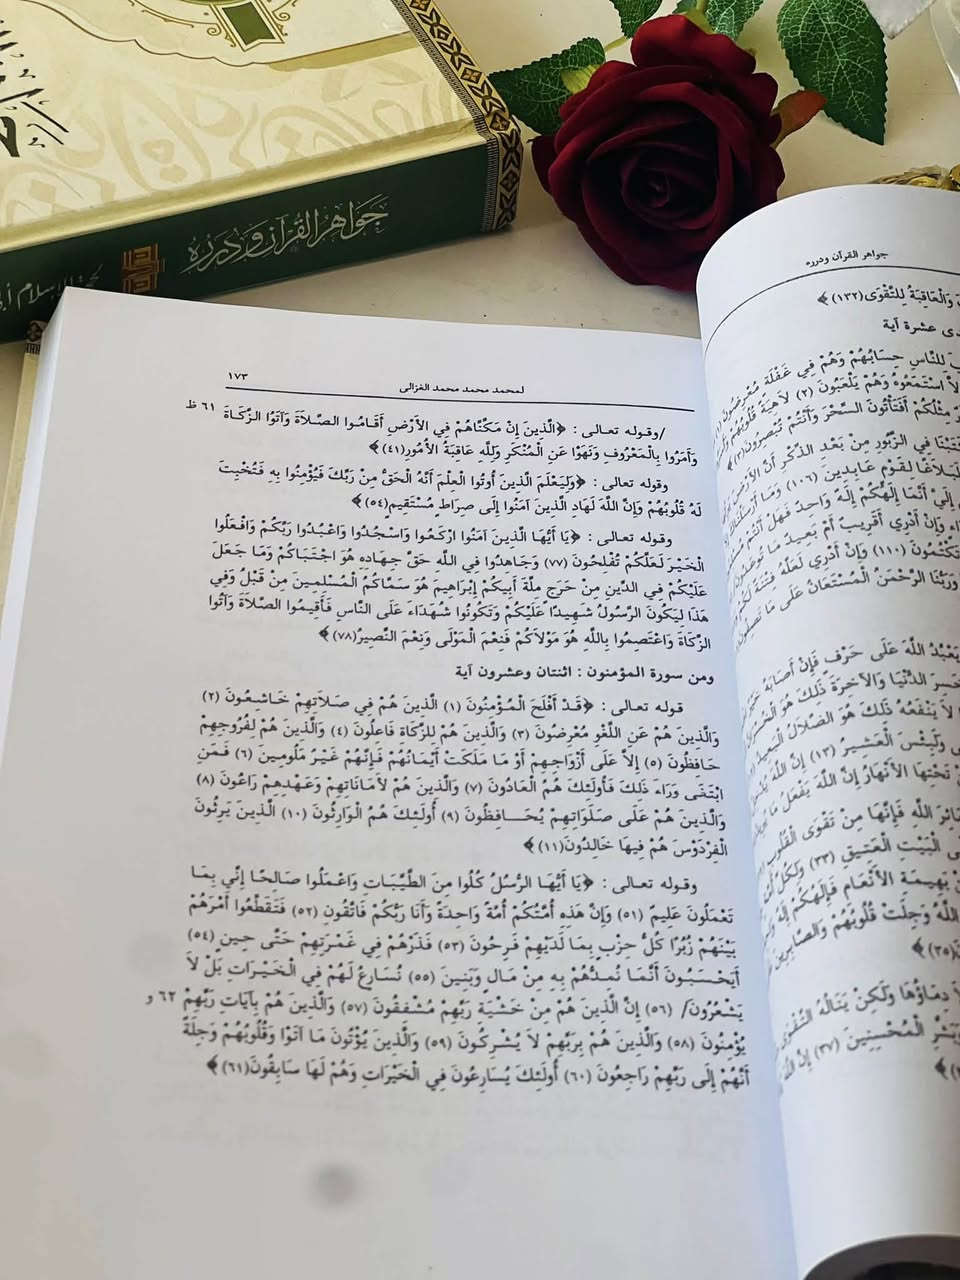 جَواهر القُرآن ودُرَره
جواهر القرآن ودرره
وَالْعَاقِبَةُ لِلتَّقْوَى(١٣٢)﴾
عشرة آية
لِلنَّاسِ حِسَابُهُمْ وَهُمْ فِي غَفْلَةٍ مُعْرِضُونَ
اسْتَمَعُوهُ وَهُمْ يَلْعَبُونَ (٢) لاَهِيَةً قُلُوبُهُمْ
مِثْلُكُمْ أَفَتَأْتُونَ السِّحْرَ وَأَنْتُمْ تُبْصِرُونَ(٣)﴾
فِي الزَّبُورِ مِنْ بَعْدِ الذِّكْرِ أَنَّ الأَرْضَ
لَبَلاَغًا لِقَوْمٍ عَابِدِينَ (١٠٦) وَمَا
إِلَيَّ أَنَّمَا إِلَهُكُمْ إِلَهٌ وَاحِدٌ فَهَلْ أَنْتُمْ
وَإِنْ أَدْرِي أَقَرِيبٌ أَمْ بَعِيدٌ مَا تُوعَدُونَ
تَكْتُمُونَ (١١٠) وَإِنْ أَدْرِي لَعَلَّهُ فِتْنَةٌ لَكُمْ
وَرَبُّنَا الرَّحْمَنُ الْمُسْتَعَانُ عَلَى مَا
يَعْبُدُ اللَّهَ عَلَى حَرْفٍ فَإِنْ أَصَابَهُ
خَسِرَ الدُّنْيَا وَالآخِرَةَ ذَلِكَ هُوَ
لاَ يَنْفَعُهُ ذَلِكَ هُوَ الضَّلاَلُ الْبَعِيدُ
وَلَبِئْسَ الْعَشِيرُ (١٣) إِنَّ اللَّهَ
تَحْتِهَا الأَنْهَارُ إِنَّ اللَّهَ يَفْعَلُ مَا
اللَّهِ فَإِنَّهَا مِنْ تَقْوَى الْقُلُوبِ
الْبَيْتِ الْعَتِيقِ (٣٣) وَلِكُلِّ
بَهِيمَةِ الأَنْعَامِ فَإِلَهُكُمْ إِلَهٌ
اللَّهُ وَجِلَتْ قُلُوبُهُمْ وَالصَّابِرِينَ
(٣٥)﴾
دِمَاؤُهَا وَلَكِنْ يَنَالُهُ التَّقْوَى
وَبَشِّرِ الْمُحْسِنِينَ (٣٧) إِنَّ اللَّهَ
لمحمد محمد محمد الغزالى ١٧٣
/وقوله تعالى : ﴿الَّذِينَ إِنْ مَكَّنَّاهُمْ فِي الأَرْضِ أَقَامُوا الصَّلاَةَ وَآتَوُا الزَّكَاةَ ٦١ ظ
وَأَمَرُوا بِالْمَعْرُوفِ وَنَهَوْا عَنِ الْمُنْكَرِ وَلِلَّهِ عَاقِبَةُ الأُمُورِ(٤١)﴾
وقوله تعالى : ﴿وَلِيَعْلَمَ الَّذِينَ أُوتُوا الْعِلْمَ أَنَّهُ الْحَقُّ مِنْ رَبِّكَ فَيُؤْمِنُوا بِهِ فَتُخْبِتَ
لَهُ قُلُوبُهُمْ وَإِنَّ اللَّهَ لَهَادِ الَّذِينَ آمَنُوا إِلَى صِرَاطٍ مُسْتَقِيمٍ(٥٤)﴾
وقوله تعالى : ﴿يَا أَيُّهَا الَّذِينَ آمَنُوا ارْكَعُوا وَاسْجُدُوا وَاعْبُدُوا رَبَّكُمْ وَافْعَلُوا
الْخَيْرَ لَعَلَّكُمْ تُفْلِحُونَ (٧٧) وَجَاهِدُوا فِي اللَّهِ حَقَّ جِهَادِهِ هُوَ اجْتَبَاكُمْ وَمَا جَعَلَ
عَلَيْكُمْ فِي الدِّينِ مِنْ حَرَجٍ مِلَّةَ أَبِيكُمْ إِبْرَاهِيمَ هُوَ سَمَّاكُمُ الْمُسْلِمِينَ مِنْ قَبْلُ وَفِي
هَذَا لِيَكُونَ الرَّسُولُ شَهِيدًا عَلَيْكُمْ وَتَكُونُوا شُهَدَاءَ عَلَى النَّاسِ فَأَقِيمُوا الصَّلاَةَ وَآتُوا
الزَّكَاةَ وَاعْتَصِمُوا بِاللَّهِ هُوَ مَوْلاَكُمْ فَنِعْمَ الْمَوْلَى وَنِعْمَ النَّصِيرُ(٧٨)﴾
ومن سورة المؤمنون : اثنتان وعشرون آية
قوله تعالى : ﴿قَدْ أَفْلَحَ الْمُؤْمِنُونَ (١) الَّذِينَ هُمْ فِي صَلاَتِهِمْ خَاشِعُونَ (٢)
وَالَّذِينَ هُمْ عَنِ اللَّغْوِ مُعْرِضُونَ (٣) وَالَّذِينَ هُمْ لِلزَّكَاةِ فَاعِلُونَ (٤) وَالَّذِينَ هُمْ لِفُرُوجِهِمْ
حَافِظُونَ (٥) إِلاَّ عَلَى أَزْوَاجِهِمْ أَوْ مَا مَلَكَتْ أَيْمَانُهُمْ فَإِنَّهُمْ غَيْرُ مَلُومِينَ (٦) فَمَنِ
ابْتَغَى وَرَاءَ ذَلِكَ فَأُولَئِكَ هُمُ الْعَادُونَ (٧) وَالَّذِينَ هُمْ لأَمَانَاتِهِمْ وَعَهْدِهِمْ رَاعُونَ (٨)
وَالَّذِينَ هُمْ عَلَى صَلَوَاتِهِمْ يُحَافِظُونَ (٩) أُولَئِكَ هُمُ الْوَارِثُونَ (١٠) الَّذِينَ يَرِثُونَ
الْفِرْدَوْسَ هُمْ فِيهَا خَالِدُونَ(١١)﴾
وقوله تعالى : ﴿يَا أَيُّهَا الرُّسُلُ كُلُوا مِنَ الطَّيِّبَاتِ وَاعْمَلُوا صَالِحًا إِنِّي بِمَا
تَعْمَلُونَ عَلِيمٌ (٥١) وَإِنَّ هَذِهِ أُمَّتُكُمْ أُمَّةً وَاحِدَةً وَأَنَا رَبُّكُمْ فَاتَّقُونِ (٥٢) فَتَقَطَّعُوا أَمْرَهُمْ
بَيْنَهُمْ زُبُرًا كُلُّ حِزْبٍ بِمَا لَدَيْهِمْ فَرِحُونَ (٥٣) فَذَرْهُمْ فِي غَمْرَتِهِمْ حَتَّى حِينٍ (٥٤)
أَيَحْسَبُونَ أَنَّمَا نُمِدُّهُمْ بِهِ مِنْ مَالٍ وَبَنِينَ (٥٥) نُسَارِعُ لَهُمْ فِي الْخَيْرَاتِ بَلْ لاَ
يَشْعُرُونَ/ (٥٦) إِنَّ الَّذِينَ هُمْ مِنْ خَشْيَةِ رَبِّهِمْ مُشْفِقُونَ (٥٧) وَالَّذِينَ هُمْ بِآيَاتِ رَبِّهِمْ ٦٢ و
يُؤْمِنُونَ (٥٨) وَالَّذِينَ هُمْ بِرَبِّهِمْ لاَ يُشْرِكُونَ (٥٩) وَالَّذِينَ يُؤْتُونَ مَا آتَوْا وَقُلُوبُهُمْ وَجِلَةٌ
أَنَّهُمْ إِلَى رَبِّهِمْ رَاجِعُونَ (٦٠) أُولَئِكَ يُسَارِعُونَ فِي الْخَيْرَاتِ وَهُمْ لَهَا سَابِقُونَ(٦١)﴾